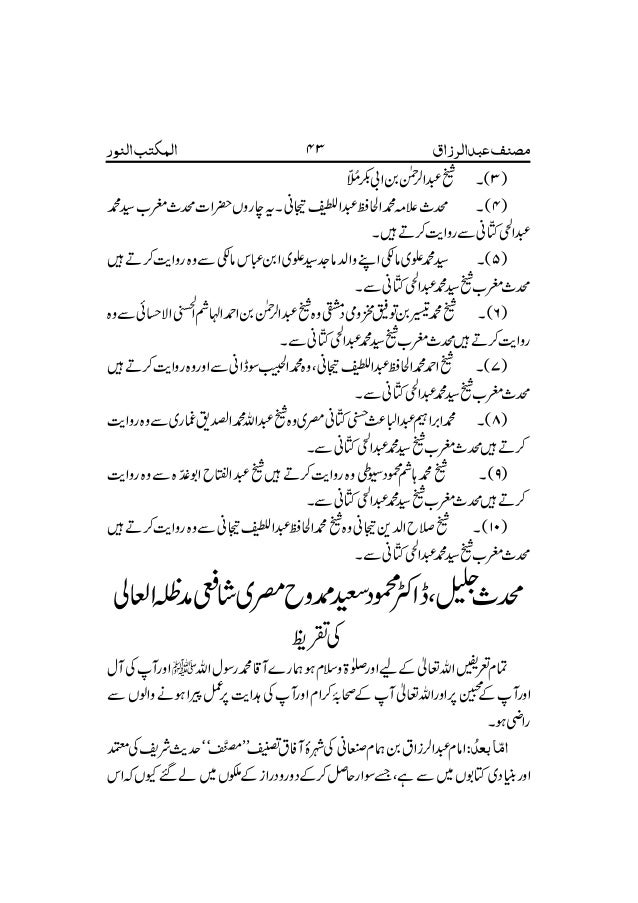 مصنف عبدالرزاق ۴۳ المکتب النور
(۳)۔ شیخ عبدالرحمٰن بن ابی بکر مُلّا
(۴)۔ محدث علامہ محمد الحافظ عبداللطیف تیجانی۔ یہ چاروں حضرات محدث مغرب سید محمد
عبدالحی کتّانی سے روایت کرتے ہیں۔
(۵)۔ سید محمد علوی مالکی اپنے والد ماجد سید علوی ابن عباس مالکی سے وہ روایت کرتے ہیں
محدث مغرب شیخ سید محمد عبدالحی کتّانی سے۔
(۶)۔ شیخ محمد تیسیر بن توفیق مخزومی دمشقی وہ شیخ عبدالرحمٰن بن احمد الہاشم الحسنی الاحسائی سے وہ
روایت کرتے ہیں محدث مغرب شیخ سید محمد عبدالحی کتّانی سے۔
(۷)۔ شیخ احمد محمد الحافظ عبداللطیف تیجانی، وہ محمد الحبیب سوڈانی سے اور وہ روایت کرتے ہیں
محدث مغرب شیخ سید محمد عبدالحی کتّانی سے۔
(۸)۔ محمد ابراہیم عبدالباعث حسنی کتّانی مصری وہ شیخ عبداللہ محمد الصدیق غماری سے وہ روایت
کرتے ہیں محدث مغرب شیخ سید محمد عبدالحی کتّانی سے۔
(۹)۔ شیخ محمد ہاشم محمود سیوطی وہ روایت کرتے ہیں شیخ عبدالفتاح ابوغدّہ سے وہ روایت
کرتے ہیں محدث مغرب شیخ سید محمد عبدالحی کتّانی سے۔
(۱۰)۔ شیخ صلاح الدین تیجانی وہ شیخ محمد الحافظ عبداللطیف تیجانی سے وہ روایت کرتے ہیں
محدث مغرب شیخ سید محمد عبدالحی کتّانی سے۔
محدث جلیل، ڈاکٹر محمود سعید ممدوح مصری شافعی مدظلہ العالی
کی تقریظ
تمام تعریفیں اللہ تعالیٰ کے لیے اور صلوٰۃ وسلام ہو ہمارے آقا محمد رسول اللہ ﷺ اور آپ کی آل
اور آپ کے محبین پر اور اللہ تعالیٰ آپ کے صحابۂ کرام اور آپ کی ہدایت پر عمل پیرا ہونے والوں سے
راضی ہو۔
امّا بعدُ: امام عبدالرزاق بن ہمام صنعانی کی شہرۂ آفاق تصنیف ’’مصنَّف‘‘ حدیث شریف کی معتمد
اور بنیادی کتابوں میں سے ہے، جسے سوار حاصل کرکے دور و دراز کے ملکوں میں لے گئے کیوں کہ اس